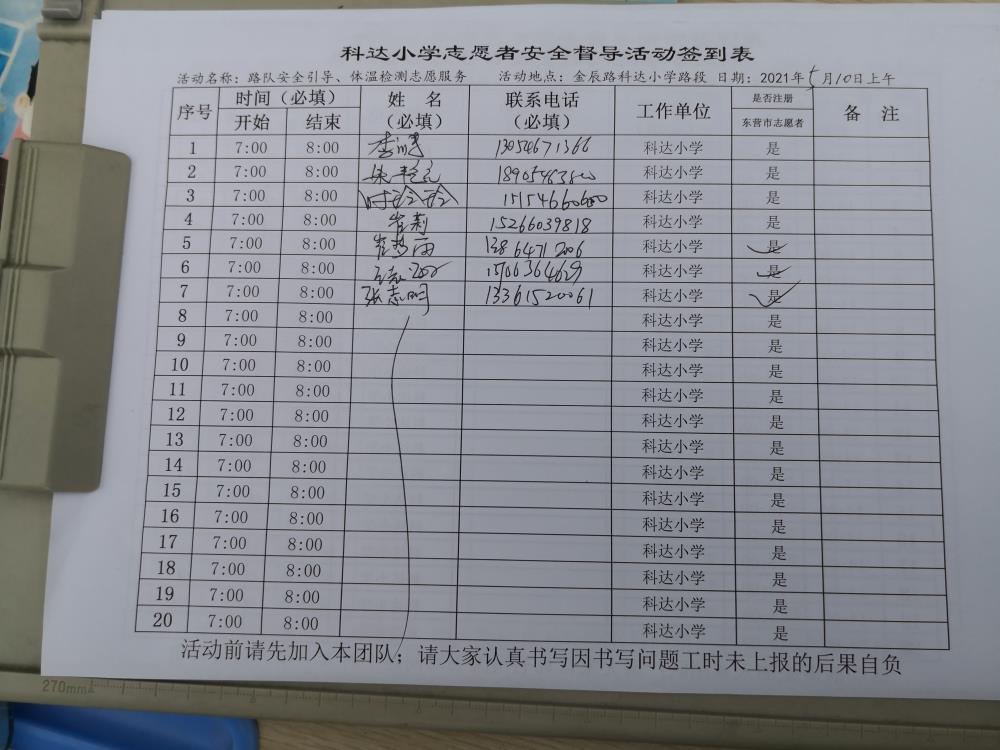 科达小学志愿者安全督导活动签到表
活动名称：路队安全引导、体温检测志愿服务 活动地点：金辰路科达小学路段 日期：2021年5月10日上午
序号 时间（必填） 姓 名（必填） 联系电话（必填） 工作单位 是否注册东营市志愿者 备 注
开始 结束
1 7:00 8:00 13054671366 科达小学 是
2 7:00 8:00 科达小学 是
3 7:00 8:00 时玲玲 15154660600 科达小学 是
4 7:00 8:00 崔莉 15266039818 科达小学 是
5 7:00 8:00 崔梦雨 13864712006 科达小学 是
6 7:00 8:00 科达小学 是
7 7:00 8:00 张志明 13361520061 科达小学 是
8 7:00 8:00 科达小学 是
9 7:00 8:00 科达小学 是
10 7:00 8:00 科达小学 是
11 7:00 8:00 科达小学 是
12 7:00 8:00 科达小学 是
13 7:00 8:00 科达小学 是
14 7:00 8:00 科达小学 是
15 7:00 8:00 科达小学 是
16 7:00 8:00 科达小学 是
17 7:00 8:00 科达小学 是
18 7:00 8:00 科达小学 是
19 7:00 8:00 科达小学 是
20 7:00 8:00 科达小学 是
活动前请先加入本团队；请大家认真书写因书写问题工时未上报的后果自负
270mm